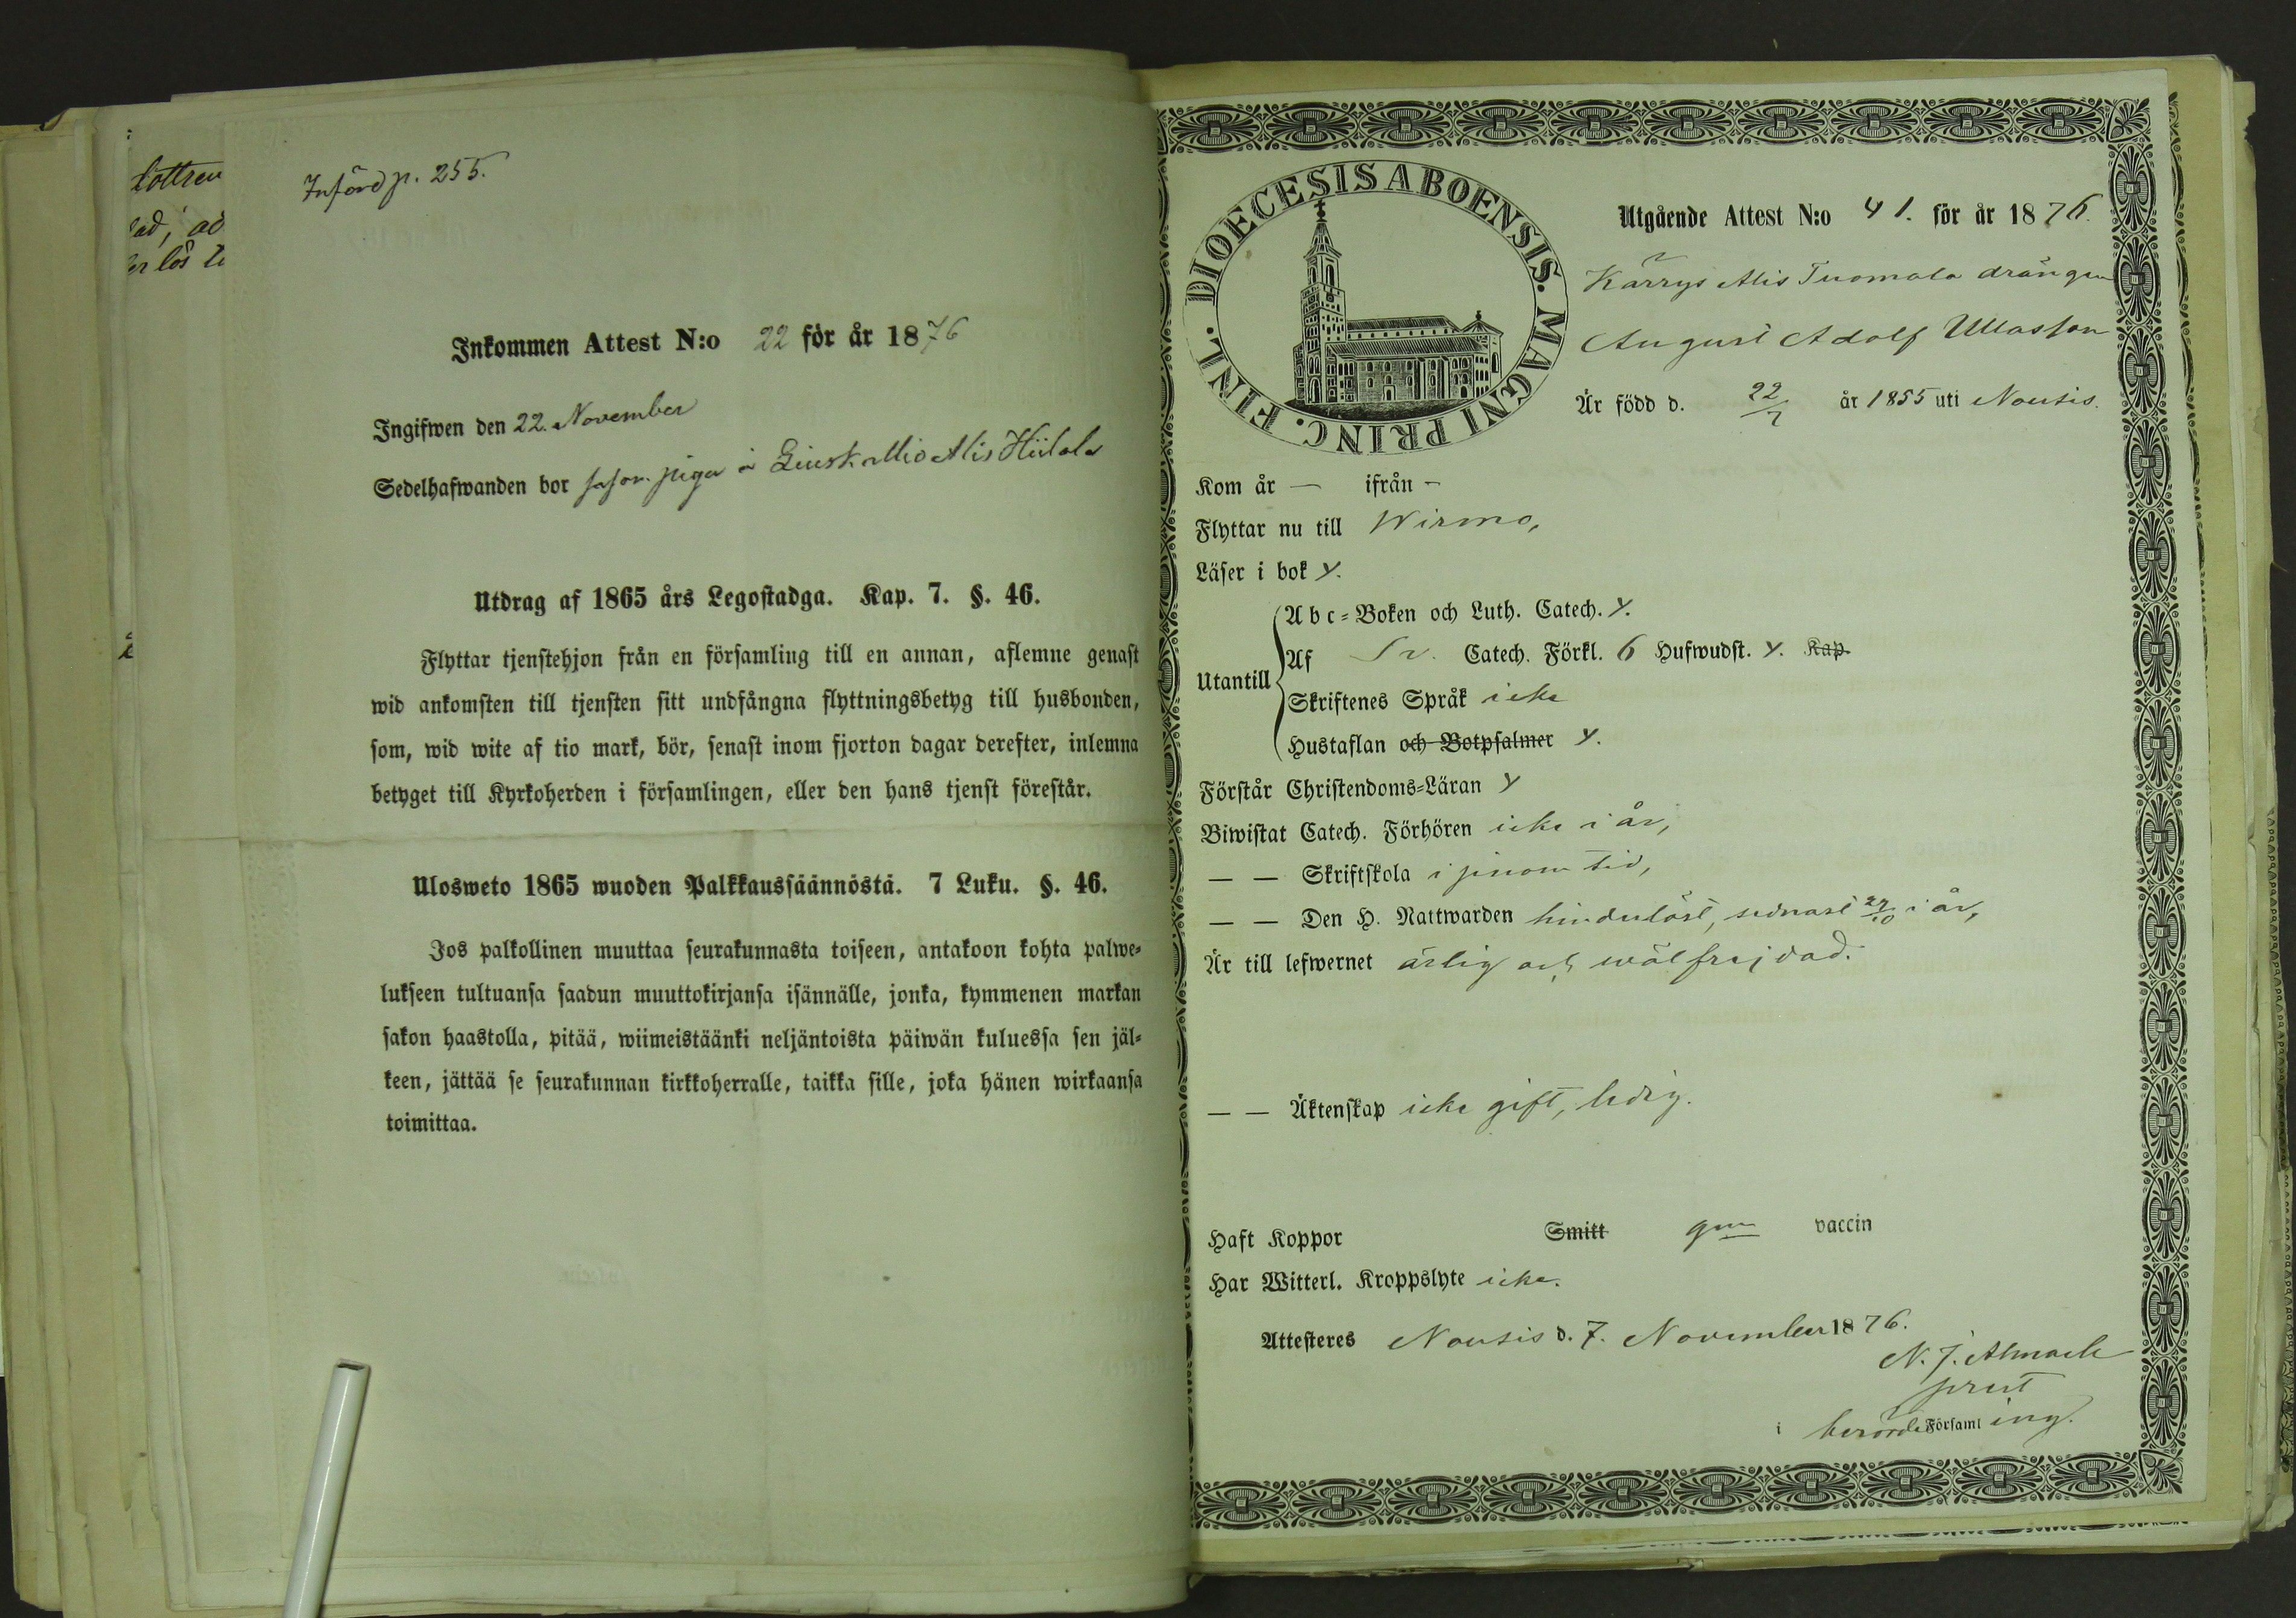 lottren
ad; ad
er lös
Införd p. 255.
Inkommen Attest N:o 22 för år 1876
Ingifwen den 22. November
Sedelhafwanden bor såsom piga i Hiilola
Utdrag af 1865 års Legostadga. Kap. 7. §. 46.
Flyttar tjenstehjon från en församling till en annan, aflemne genast
wid ankomsten till tjensten sitt undfångna flyttningsbetyg till husbonden,
som, wid wite af tio mark, bör, senast inom fjorton dagar derefter, inlemna
betyget till Kyrkoherden i församlingen, eller den hans tjenst förestår.
Ulosweto 1865 wuoden Palkkaussäännöstä. 7 Luku. §. 46.
Jos palkollinen muuttaa seurakunnasta toiseen, antakoon kohta palwe-
lukseen tultuansa saadun muuttokirjansa isännälle, jonka, kymmenen markan
sakon haastolla, pitää, wiimeistäänki neljäntoista päiwän kuluessa sen jäl-
keen, jättää se seurakunnan kirkkoherralle, taikka sille, joka hänen wirkaansa
toimittaa.
DIOECESIS ABOENSIS. MAGNI PRINC. FINL.
Utgående Attest N:o 41. för år 1876.
Kärrys Alis Tuomola drängen
August Adolf Ullasson
Är född d. 22/7 år 1855 uti Nousis.
Kom år — ifrån –
Flyttar nu till Wirmo,
Läser i bok y.
Utantill
Abc-Boken och Luth. Catech. y.
Af Sv. Catech. Förkl. 6 Hufwudst. y. Kap.
Skriftenes Språk icke
Hustaflan och Botpsalmer y.
Förstår Christendoms-Läran y
Biwistat Catech. Förhören icke i år,
— — Skriftskola i sinom tid,
— — Den H. Nattwarden hinderlöst, sednast 29/10 i år,
Är till lefwernet ärlig och wälfrejdad.
— — Äktenskap icke gift, ledig.
Haft Koppor Smitt gm vaccin
Har Witterl. Kroppslyte icke.
Attesteres Nousis d. 7. November 1876.
N. J. Almark
prest
i berörde Församling.